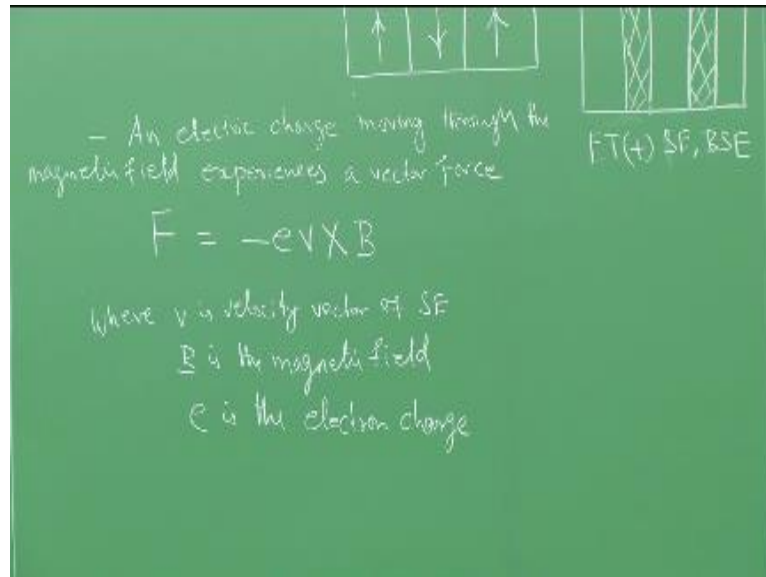 – An electric charge moving through the
magnetic field experiences a vector force
F = –ev×B
Where v is velocity vector of SE
B is the magnetic field
e is the electron charge
ET(+) SE, BSE